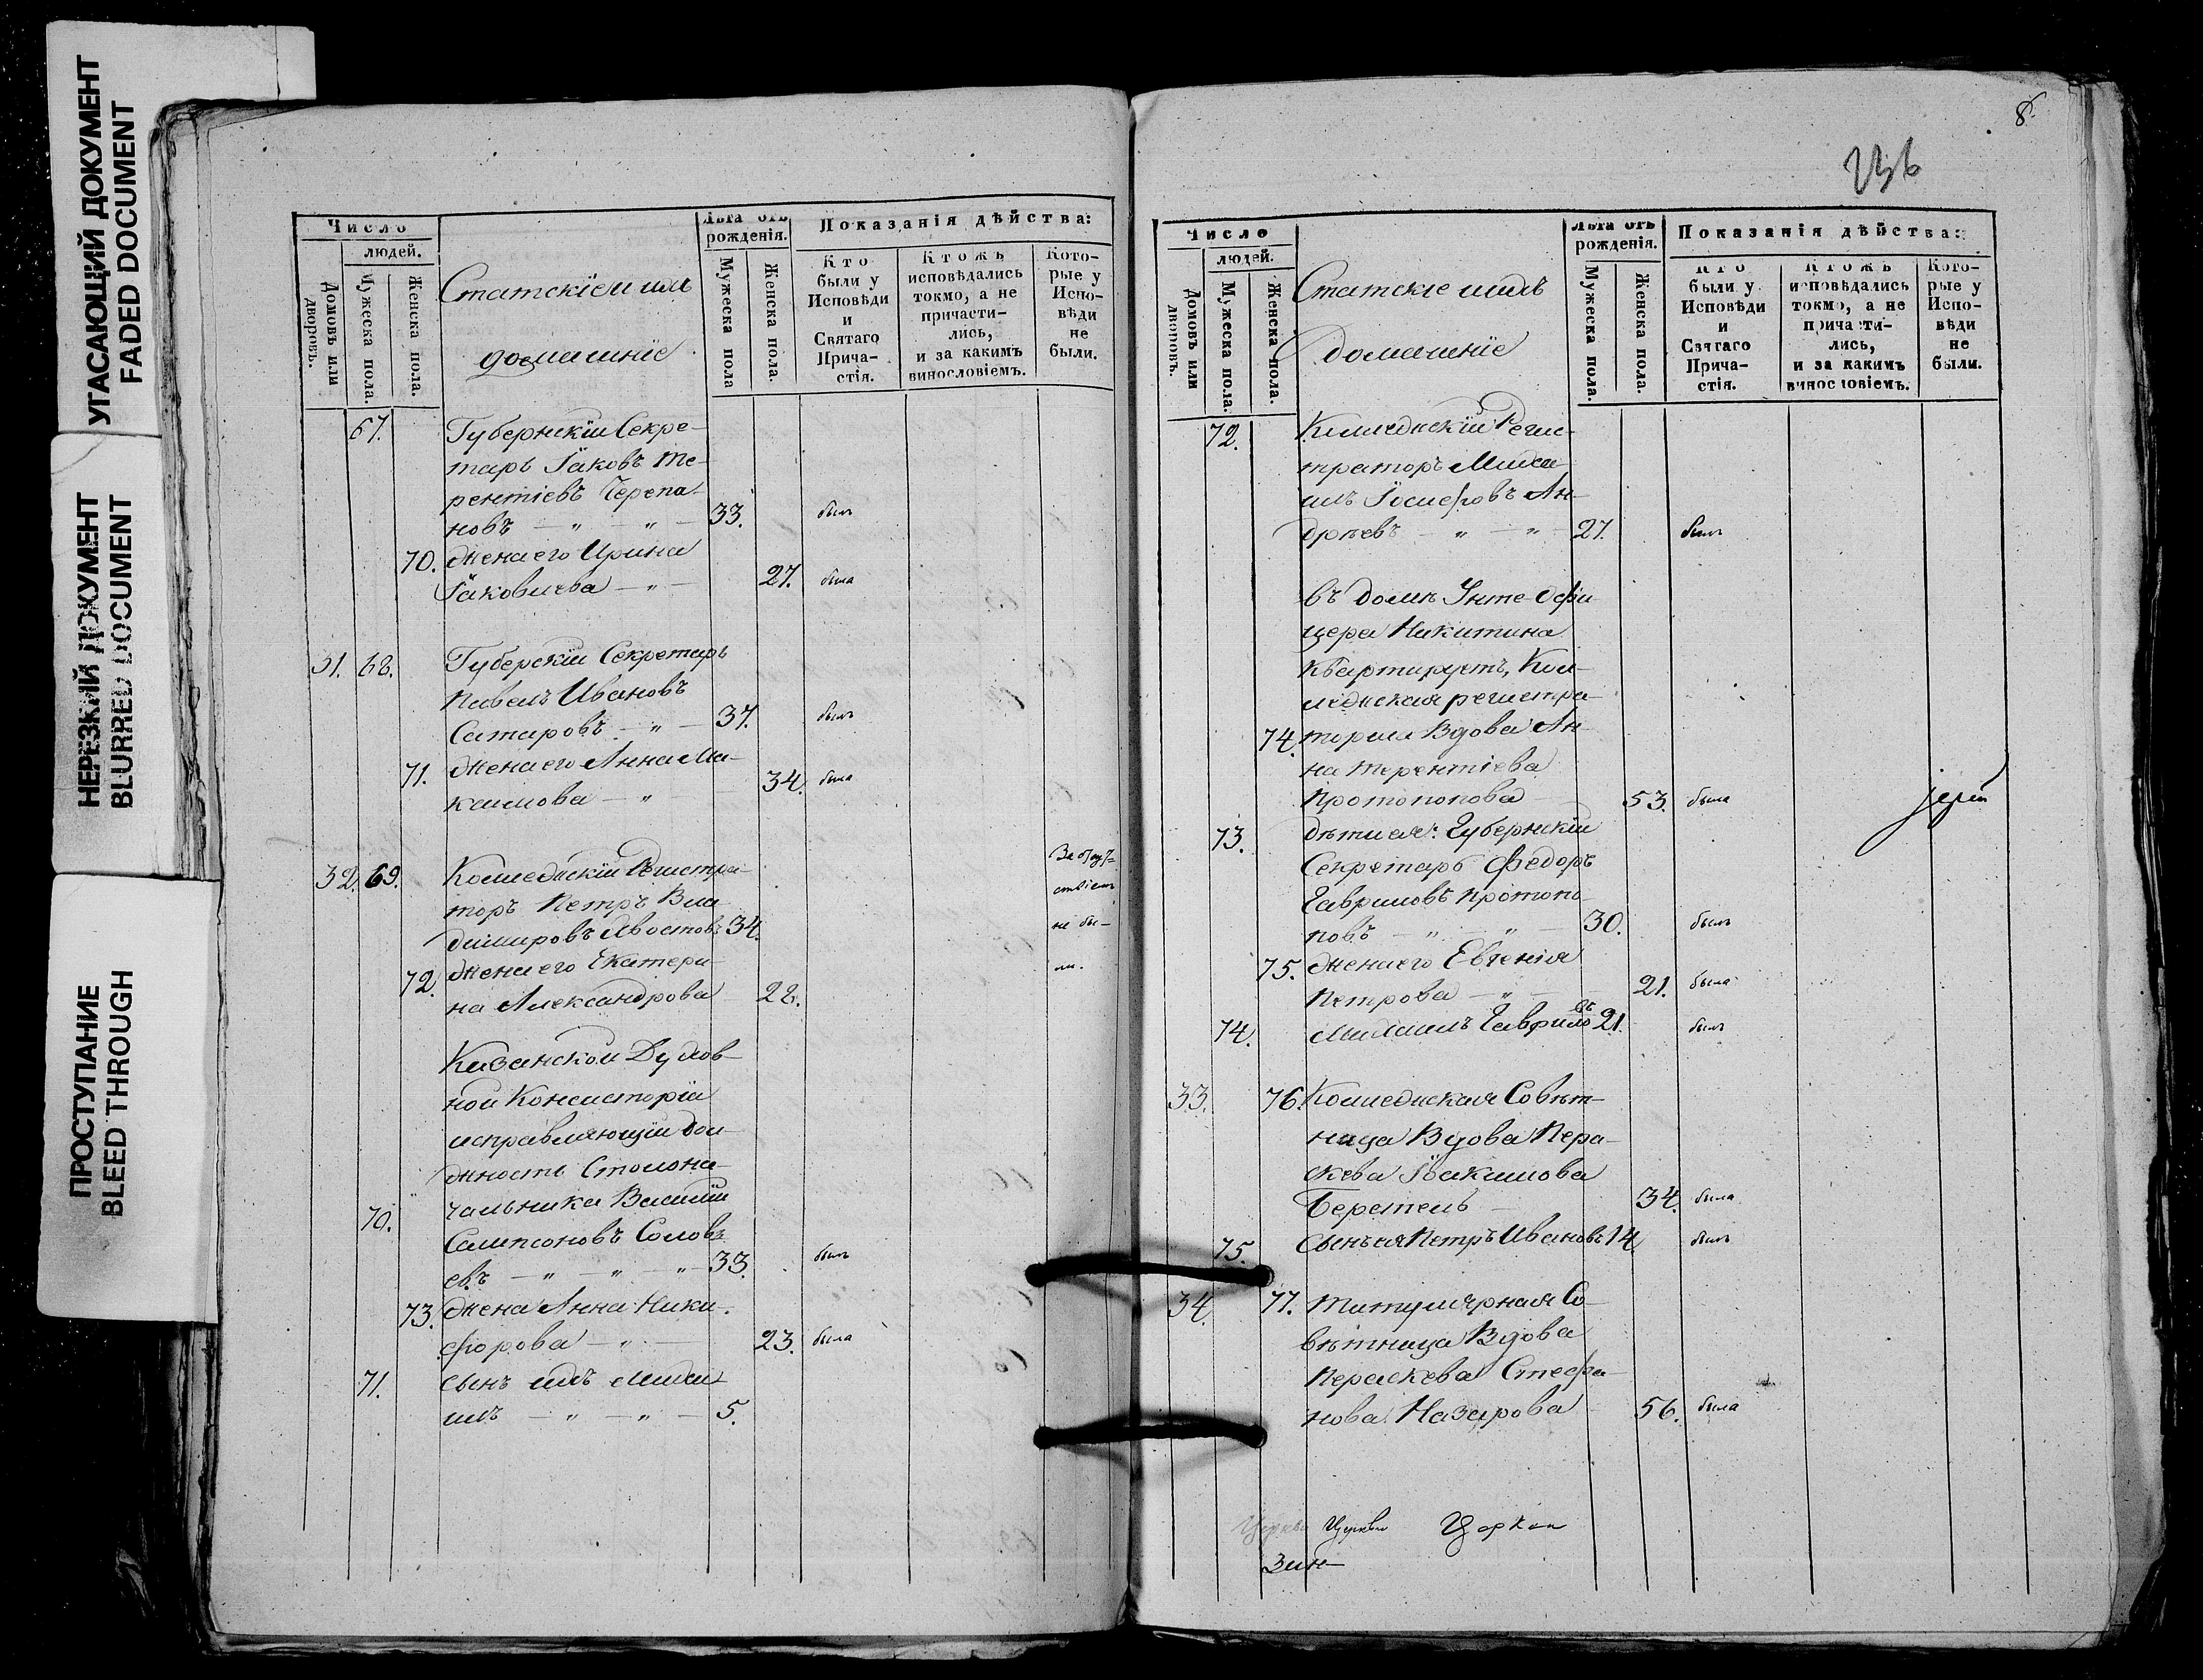 УГАСАЮЩИЙ ДОКУМЕНТ
FADED DOCUMENT
НЕРЕЗКИЙ ДОКУМЕНТ
BLURRED DOCUMENT
ПРОСТУПАНИЕ
BLEED THROUGH
Число
людей.
Домовъ или дворовъ.
Мужеска пола.
Женска пола.
Статскіе и ихъ
домашніе
Лѣта отъ
рожденія.
Мужеска пола
Женска пола.
Показанія дѣйства:
Кто
были у
Исповѣди
и
Святаго
Прича-
стія.
Ктожъ
исповѣдались
токмо, а не
причасти-
лись,
и за какимъ
винословіемъ.
Кото-
рые у
Испо-
вѣди
не
были.
67. Губернскій Секре-
таръ Іаковъ Те-
рентіевъ Черепа-
новъ — „ — „ — 33. былъ
70. Жена его Ирина
Іаковлева — „ — 27. была
31. 68. Губерскій Секретарь
Павелъ Ивановъ
Сатаровъ — „ — 37. былъ
71. Жена его Анна Ма-
ксимова — „ 34. была
32. 69. Коллежскій Регистра-
торъ Петръ Вла
диміровъ Хвостовъ 34.
72. Жена его Екатери-
на Александрова 22.
За отсут-
ствіем
не бы-
ли.
Казанской Духов-
ной Консисторіи
исправляющій дол-
жность Столона-
70. чальника Василій
Сампсоновъ Соловь
евъ — „ — „ — „ — 33. былъ
73. Жена Анна Ники-
форова — „ — 23. была
71. Сынъ ихъ Миха
илъ — „ — „ — 5.
8
Число
людей.
Домовъ или дворовъ.
Мужеска пола.
Женска пола.
Статскіе ихъ
домашніе
Лѣта отъ
рожденія.
Мужеска пола.
Женска пола.
Показанія дѣйства:
Кто
были у
Исповѣди
и
Святаго
Прича-
стія.
Ктожъ
исповѣдались
токмо, а не
причасти-
лись,
и за какимъ
винословіемъ.
Кото-
рые у
Испо-
вѣди
не
были.
72. Коллежскій Регис-
траторъ Миха
илъ Іосифовъ Ан-
дреевъ — „ — „ — 27. былъ
въ домѣ Унте-Офи
цера Никитина
Квартируетъ, Кол-
лежская регистра-
74. торша Вдова Ан-
на Терентіева
Протопопова — 53. была
Іерей
73. дѣти ея: Губернскій
Секретарь Федоръ
Гавриловъ Протопо-
повъ — „ — „ — 30. былъ
75. Жена его Евгенія
Петрова — „ — 21. была
74. Михаилъ Гавриловъ 21. былъ
33. 76. Коллежская Совѣт-
ница Вдова Пера-
скева Іоакимова
Беретель — 34. была
75. Сынъ ея Петръ Ивановъ 14 былъ
34. 77. Титулярная Со-
вѣтница Вдова
Пераскева Стефа-
нова Назарова 56. была
Церкви Церкви Церкви